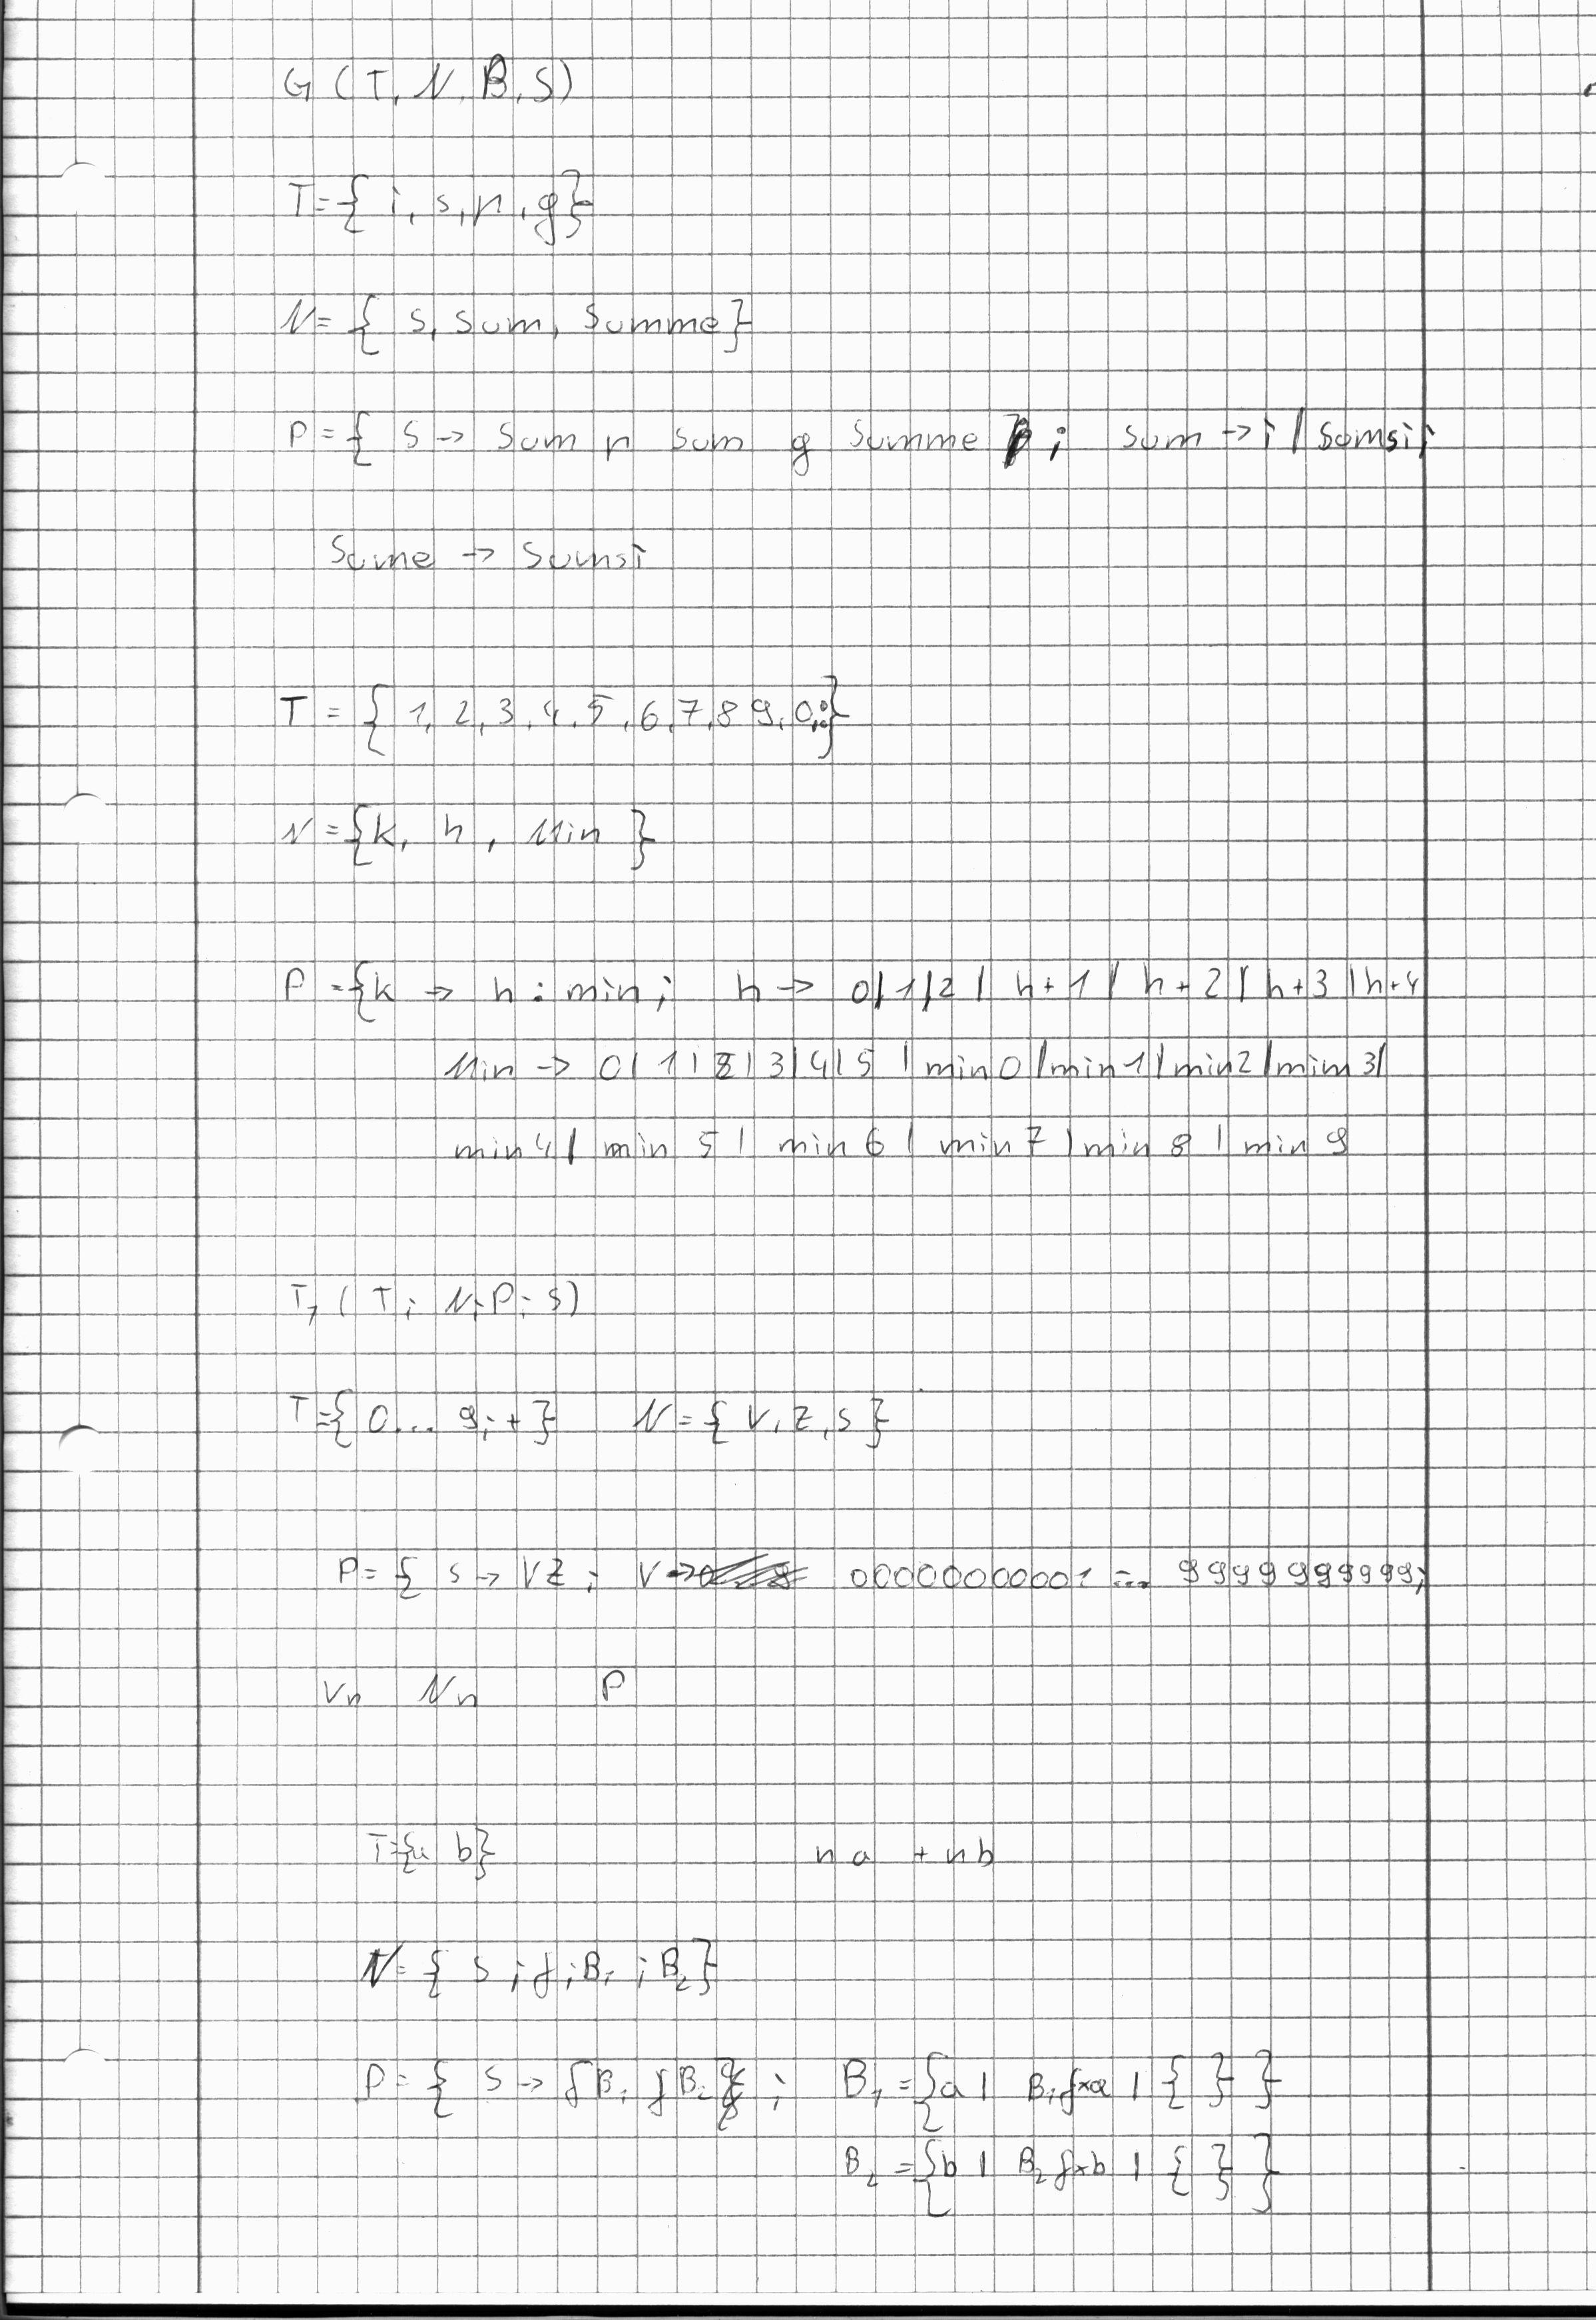 G ( T, N, B, S )
T = { i, s, p, g }
N = { s, sum, summe }
P = { s → sum p sum g summe ; sum → i | sumsi ;
Sume → sumsi
T = { 1, 2, 3, 4, 5, 6, 7, 8 9, 0, : }
N = { k, h, Min }
P = { k → h : min ; h → 0 | 1 | 2 | h + 1 | h + 2 | h + 3 | h + 4
Min → 0 | 1 | 2 | 3 | 4 | 5 | min 0 | min 1 | min 2 | mim 3 |
min 4 | min 5 | min 6 | min 7 | min 8 | min 9
T₁ ( T ; N ; P ; s )
T = { 0 ... 9 ; + } N = { V, Z, s }
P = { s → V Z ; V → 00000000001 ... 99999999999 ;
Vn Nn P
T = { a b } n a + n b
N = { s ; f ; B₁ ; B₂ }
P = { s → f B₁ f B₂ ; B₁ = { a | B₁ f×a | { } }
B₂ = { b | B₂ f×b | { } }